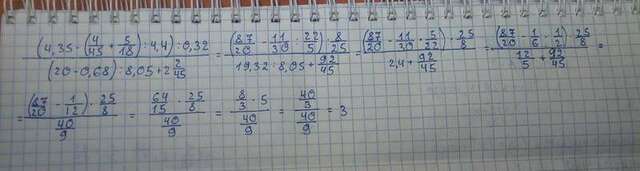 \frac{(4,35 - (\frac{4}{45} + \frac{5}{18}) : 4,4) : 0,32}{(20 - 0,68) : 8,05 + 2\frac{2}{45}} = \frac{(\frac{87}{20} - \frac{11}{30} : \frac{22}{5}) : \frac{8}{25}}{19,32 : 8,05 + \frac{92}{45}} = \frac{(\frac{87}{20} - \frac{11}{30} · \frac{5}{22}) · \frac{25}{8}}{2,4 + \frac{92}{45}} = \frac{(\frac{87}{20} - \frac{1}{6} · \frac{1}{2}) · \frac{25}{8}}{\frac{12}{5} + \frac{92}{45}} =
= \frac{(\frac{87}{20} - \frac{1}{12}) · \frac{25}{8}}{\frac{40}{9}} = \frac{\frac{64}{15} · \frac{25}{8}}{\frac{40}{9}} = \frac{\frac{8}{3} · 5}{\frac{40}{9}} = \frac{\frac{40}{3}}{\frac{40}{9}} = 3